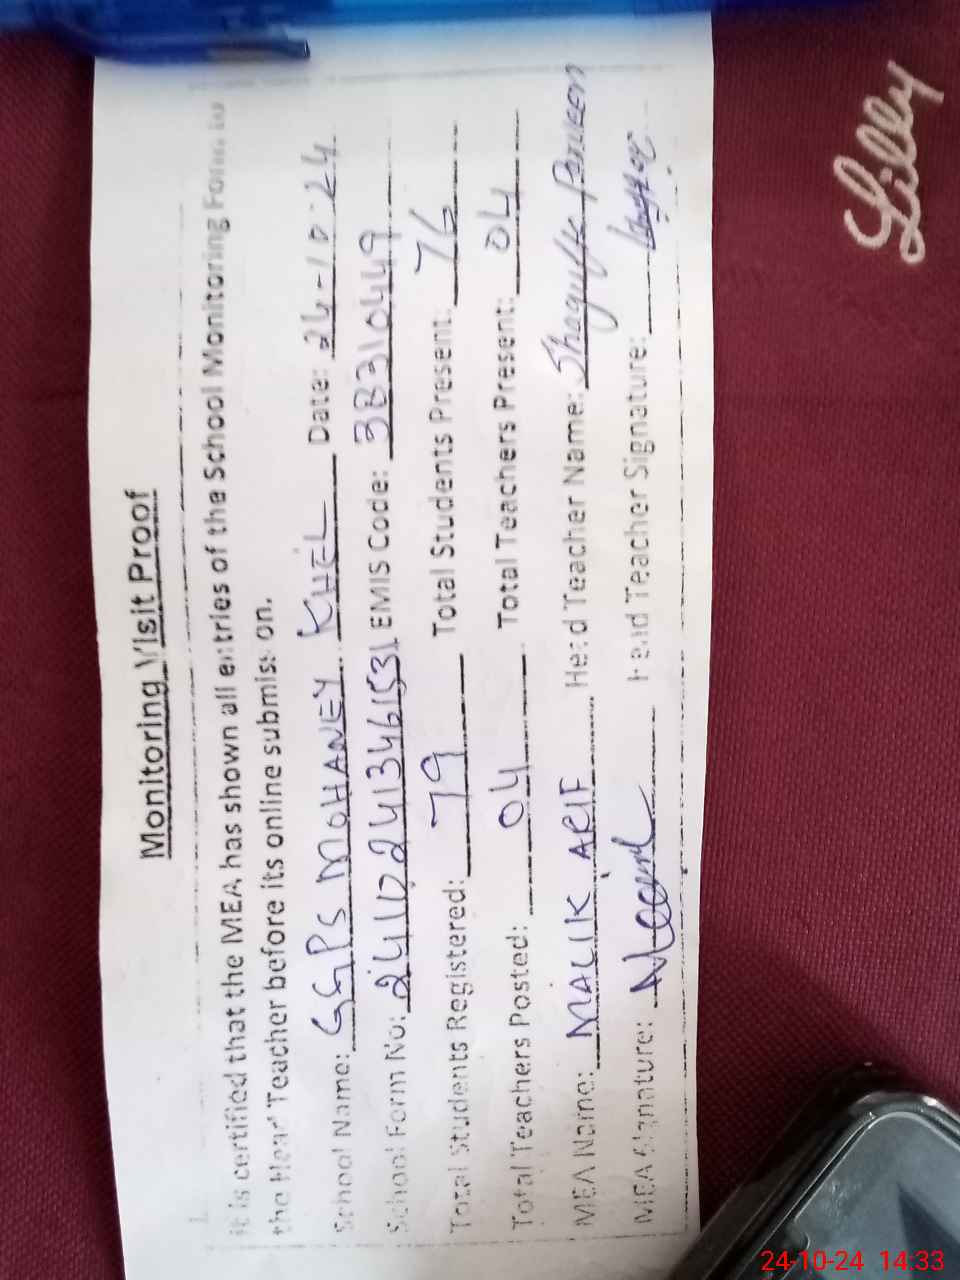 Monitoring Visit Proof
It is certified that the MEA has shown all entries of the School Monitoring Form to
the Head Teacher before its online submission.
School Name: GGPS MOHANEY KHEL Date: 24-10-24
School Form No: EMIS Code: 38310449
Total Students Registered: 79 Total Students Present: 76
Total Teachers Posted: 04 Total Teachers Present: 04
MEA Name: MALIK ARIF Head Teacher Name: Shagufta Parveen
MEA Signature: Head Teacher Signature:
Lilly
24-10-24 14:33